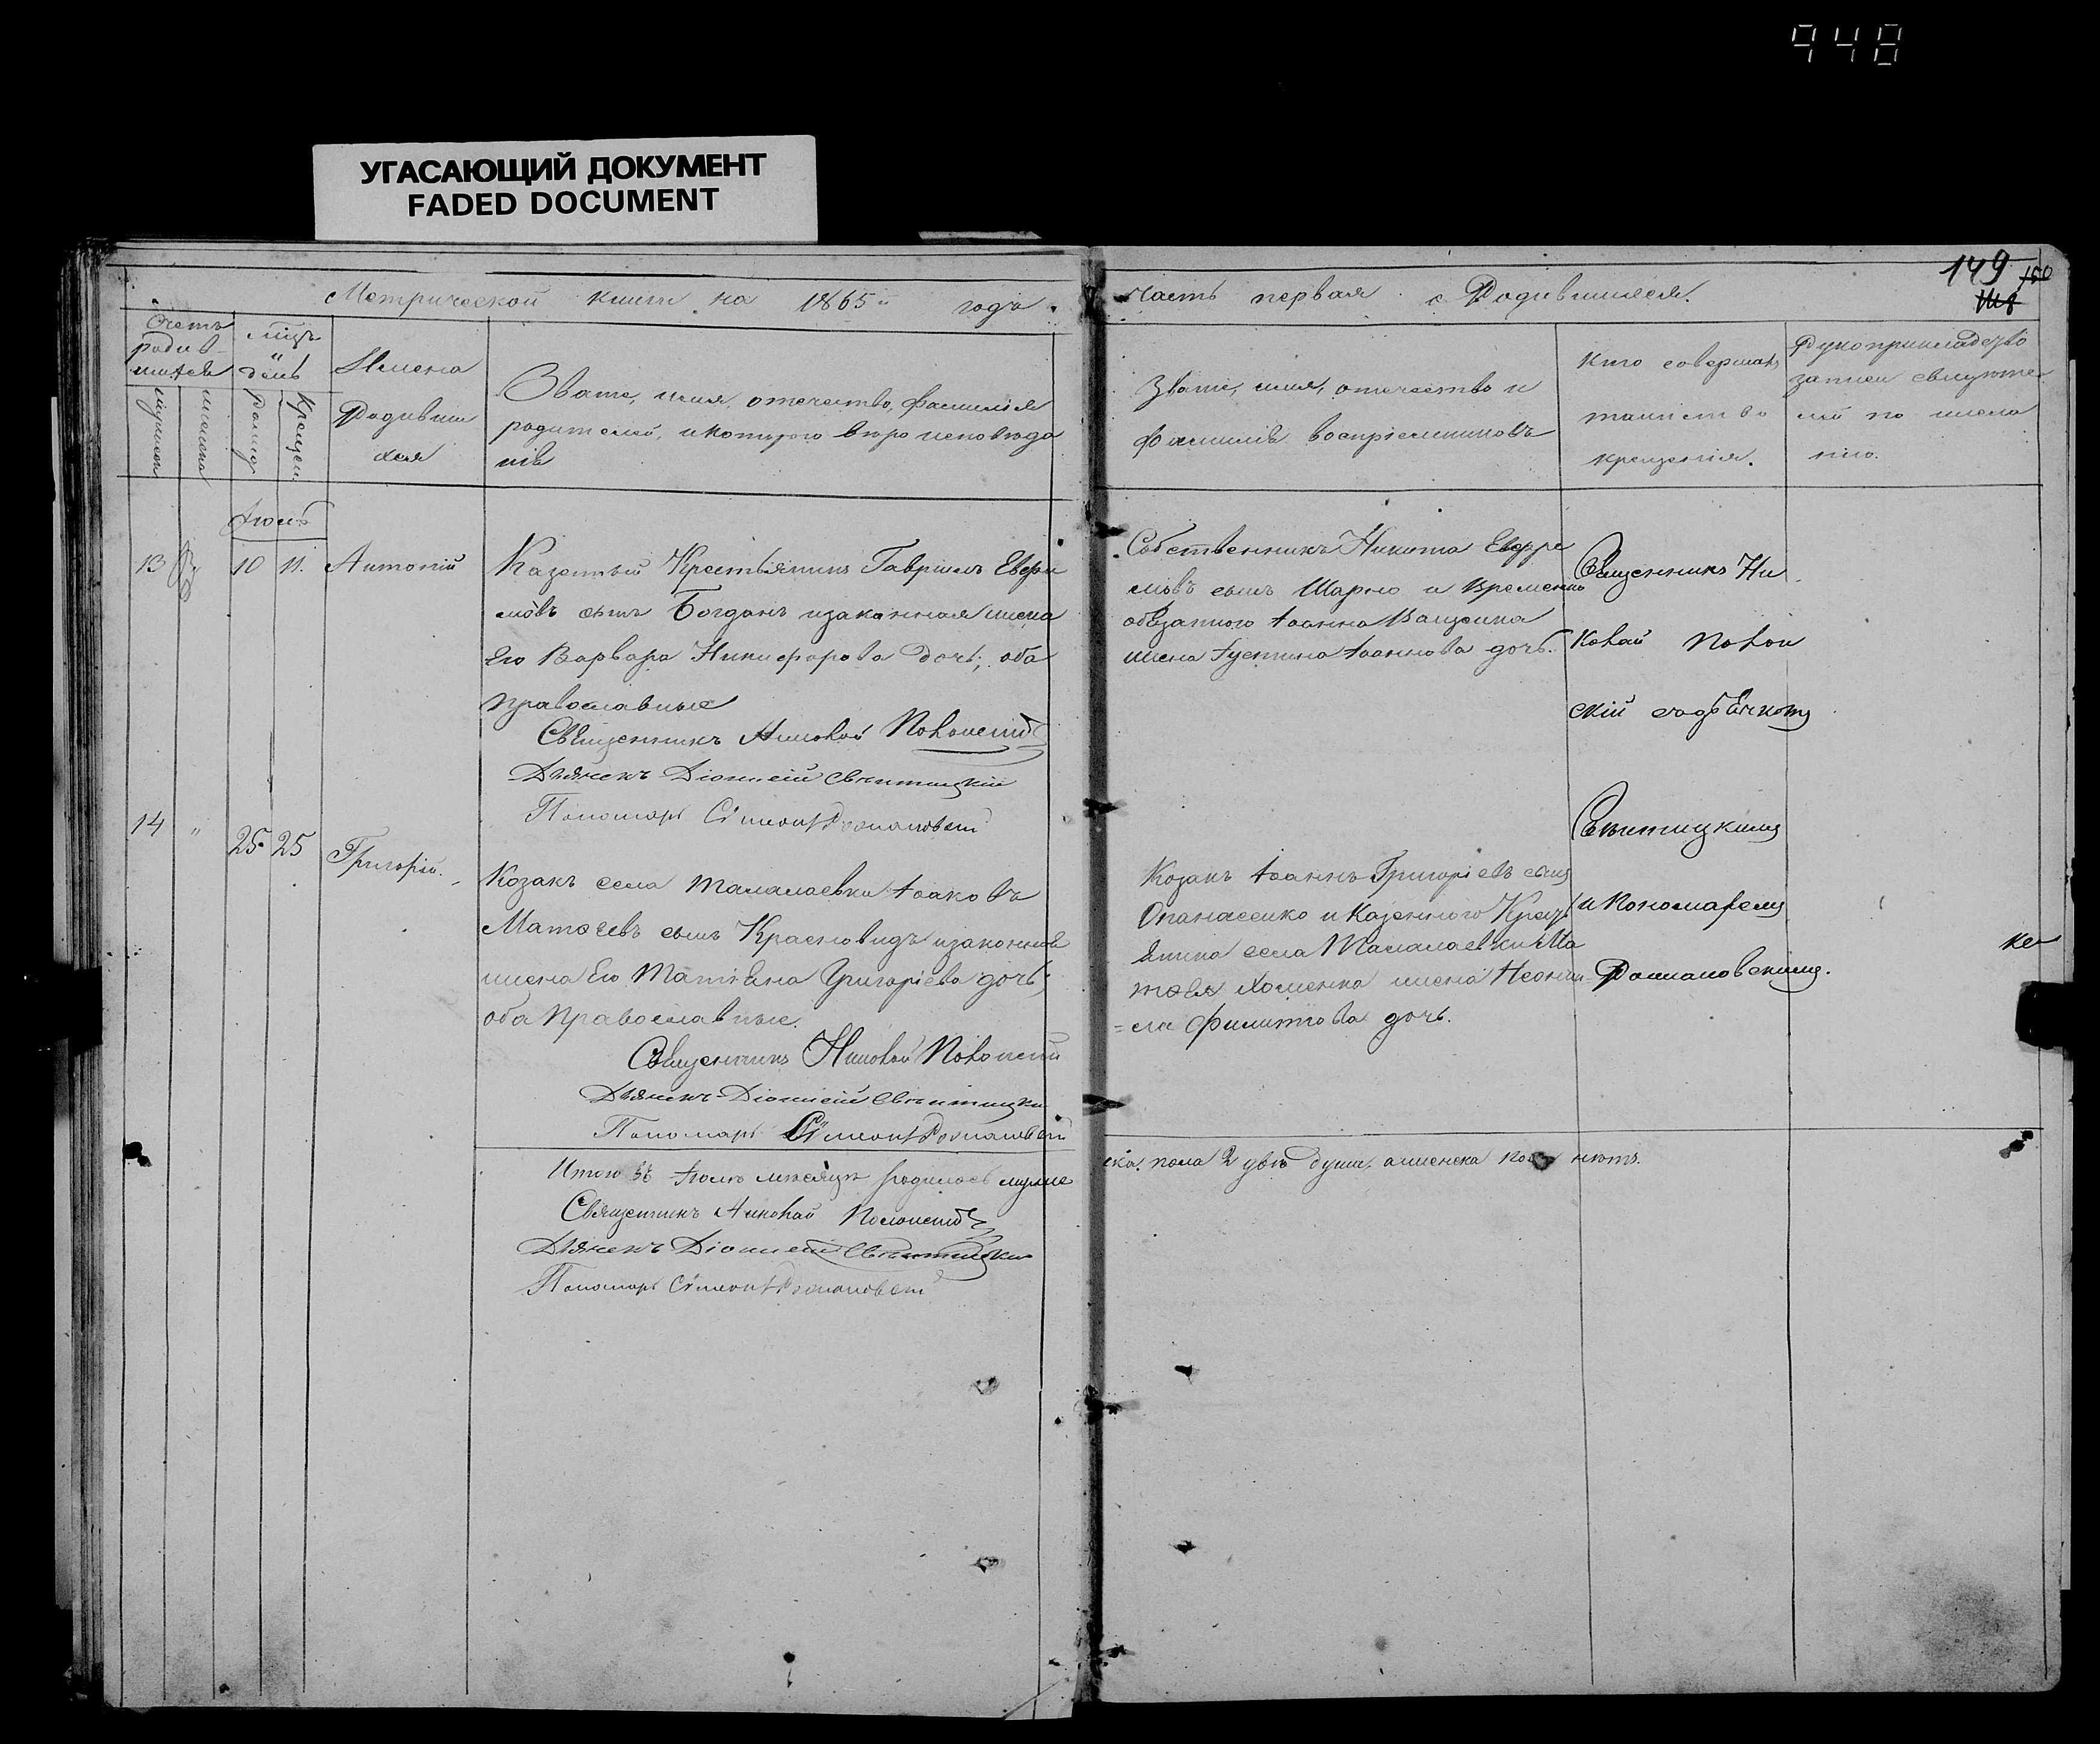 948
УГАСАЮЩИЙ ДОКУМЕНТ
FADED DOCUMENT
149 150
Метрической книги на 1865й годъ.
Часть первая о Родившихся.
Счетъ
родив-
шихся
мужеск
женска
Мцъ
и
день
рожд
крещен
Имена
Родивши
хся
Званіе, имя, отечество, фамилія
родителей, и которого вѣроисповѣда
нія
Званіе, имя, отечество и
фамилія воспріемниковъ
Кто совершалъ
таинство
крещенія.
Рукоприкладство
записи свидѣте-
лей по жела
нію.
Іюль
13 10 11. Антоній
Казенный Крестьянинъ Гавріилъ Евфи
мовъ сынъ Богданъ и законная жена
Его Варвара Никифорова дочь; оба
православные
Священникъ Николай Полонскій
Дьячекъ Діонисій Свѣнтицкій
Пономарь Сѵмеонъ Романовскій
Собственникъ Никита Евфи
мовъ сынъ Шарко и временно
обязанного Іоанна Ващенка
жена Іустина Іоаннова дочь.
Священникъ Ни
колай Полон
скій съ дьячкомъ
Свѣнтицкимъ
и Пономаремъ
Романовскимъ.
14 " 25 25 Григорій.
Козакъ села Талалаевки Іаковъ
Матѳеевъ сынъ Красновидъ и законная
жена Его Татіана Григоріева дочь,
оба Православные.
Священникъ Николай Полонскій
Дьячекъ Діонисій Свѣнтицкій
Пономарь Сѵмеонъ Романовскій
Козакъ Іоаннъ Григоріевъ сынъ
Опанасенко и Казенного Крест
янина села Талалаевки Ма
тѳея Хоменка жена Неони-
=ла Филиппова дочь.
Итого въ Іюлѣ мѣсяцѣ родилось муже
ска. пола 2 двѣ души, а женска пола нѣтъ.
Священникъ Николай Полонскій
Дьячекъ Діонисій Свѣнтицкій
Пономарь Сѵмеонъ Романовскій